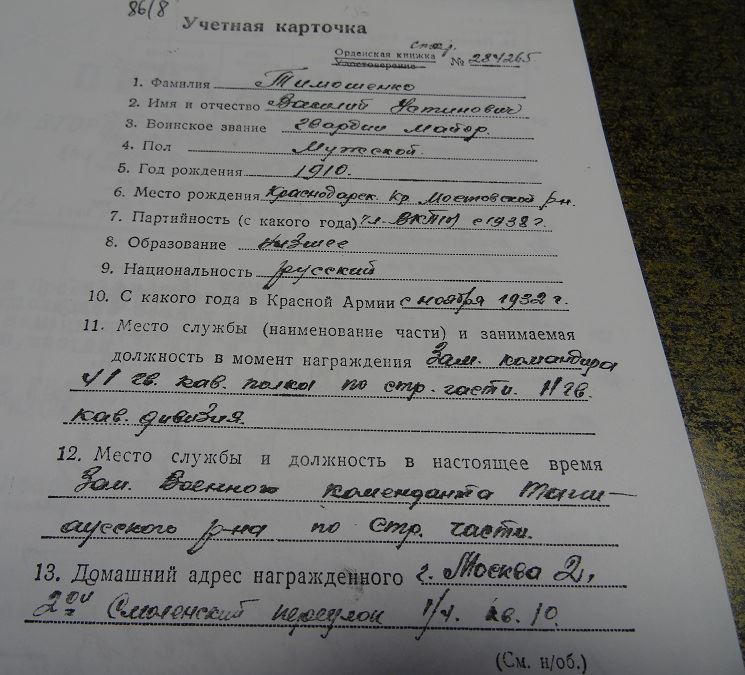 86/8
Учетная карточка
стар.
Орденская книжка
Удостоверение № 284265
1. Фамилия Тимошенко
2. Имя и отчество Василий Устинович
3. Воинское звание Гвардии майор.
4. Пол Мужской.
5. Год рождения 1910.
6. Место рождения Краснодарск. Кр. Мостовской р-н.
7. Партийность (с какого года) чл. ВКП(б) с 1938 г.
8. Образование низшее
9. Национальность русский
10. С какого года в Красной Армии с ноября 1932 г.
11. Место службы (наименование части) и занимаемая
должность в момент награждения Зам. командира
41 гв. кав. полка по стр. части. 11 гв.
кав. дивизия.
12. Место службы и должность в настоящее время
Зам. Военного коменданта
р-на по стр. части.
13. Домашний адрес награжденного г. Москва 2,
2ой Смоленский переулок 1/4. кв. 10.
(См. н/об.)